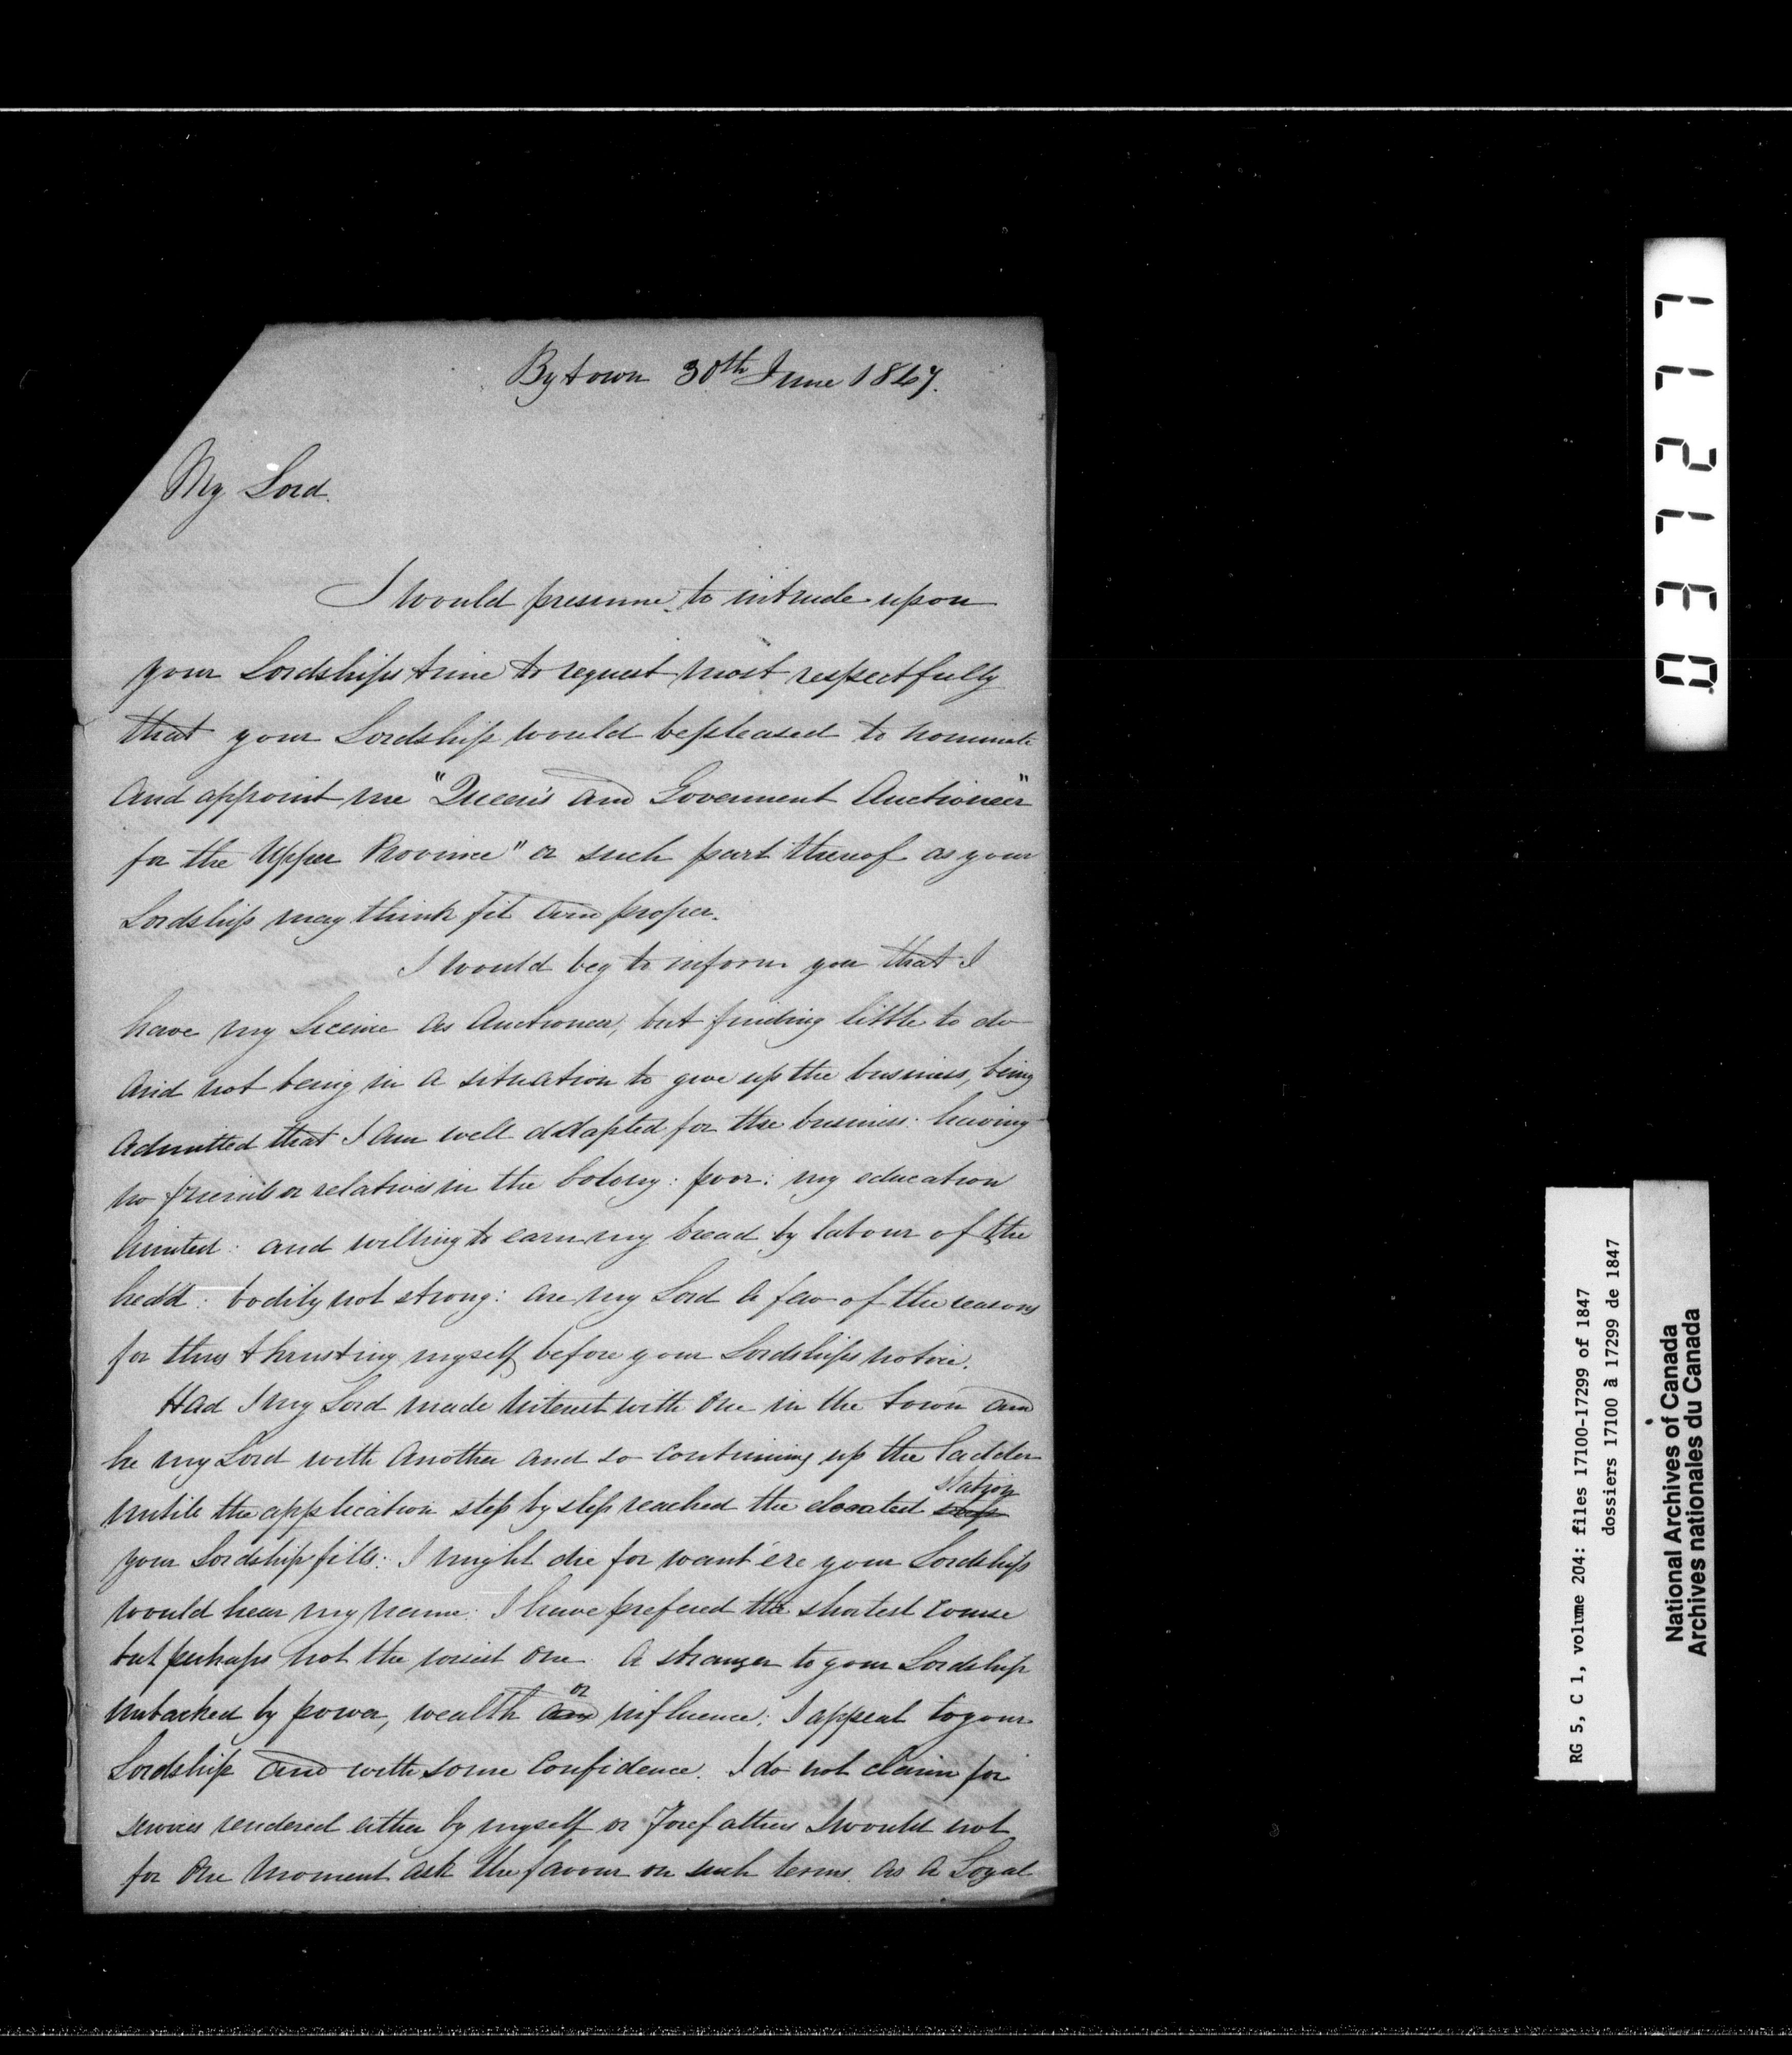 Bytown 30th June 1847.
My Lord.
I would presume to intrude upon
your Lordships time to request most respectfully
that your Lordship would be pleased to nominate
and appoint me "Queen's and Government Auctioneer"
for the Upper Province" or such part thereof as your
Lordship may think fit and proper.
I would beg to inform you that I
have my License as Auctioneer, but finding little to do
and not being in a situation to give up the business, being
admitted that I am well addapted for the business: having
no friends or relatives in the Colony: poor: my education
limited: and willing to earn my bread by labour of the
head: bodily not strong: are my Lord a few of the reasons
for thus thrusting myself before your Lordships notice.
Had I my Lord made interest with one in the town and
he my Lord with another and so continuing up the ladder
station
untill the application step by step reached the elevated step
your Lordship fills: I might die for want 'ere your Lordship
would hear my name: I have prefered the shortest course
but perhaps not the wisest one. A stranger to your Lordship
or
unbacked by power, wealth and influence; I appeal to your
Lordship and with some confidence. I do not claim for
services rendered either by myself or Forefathers I would not
for one moment ask the favour on such terms. As a Loyal
037277
RG 5, C 1, volume 204: files 17100-17299 of 1847
dossiers 17100 à 17299 de 1847
National Archives of Canada
Archives nationales du Canada